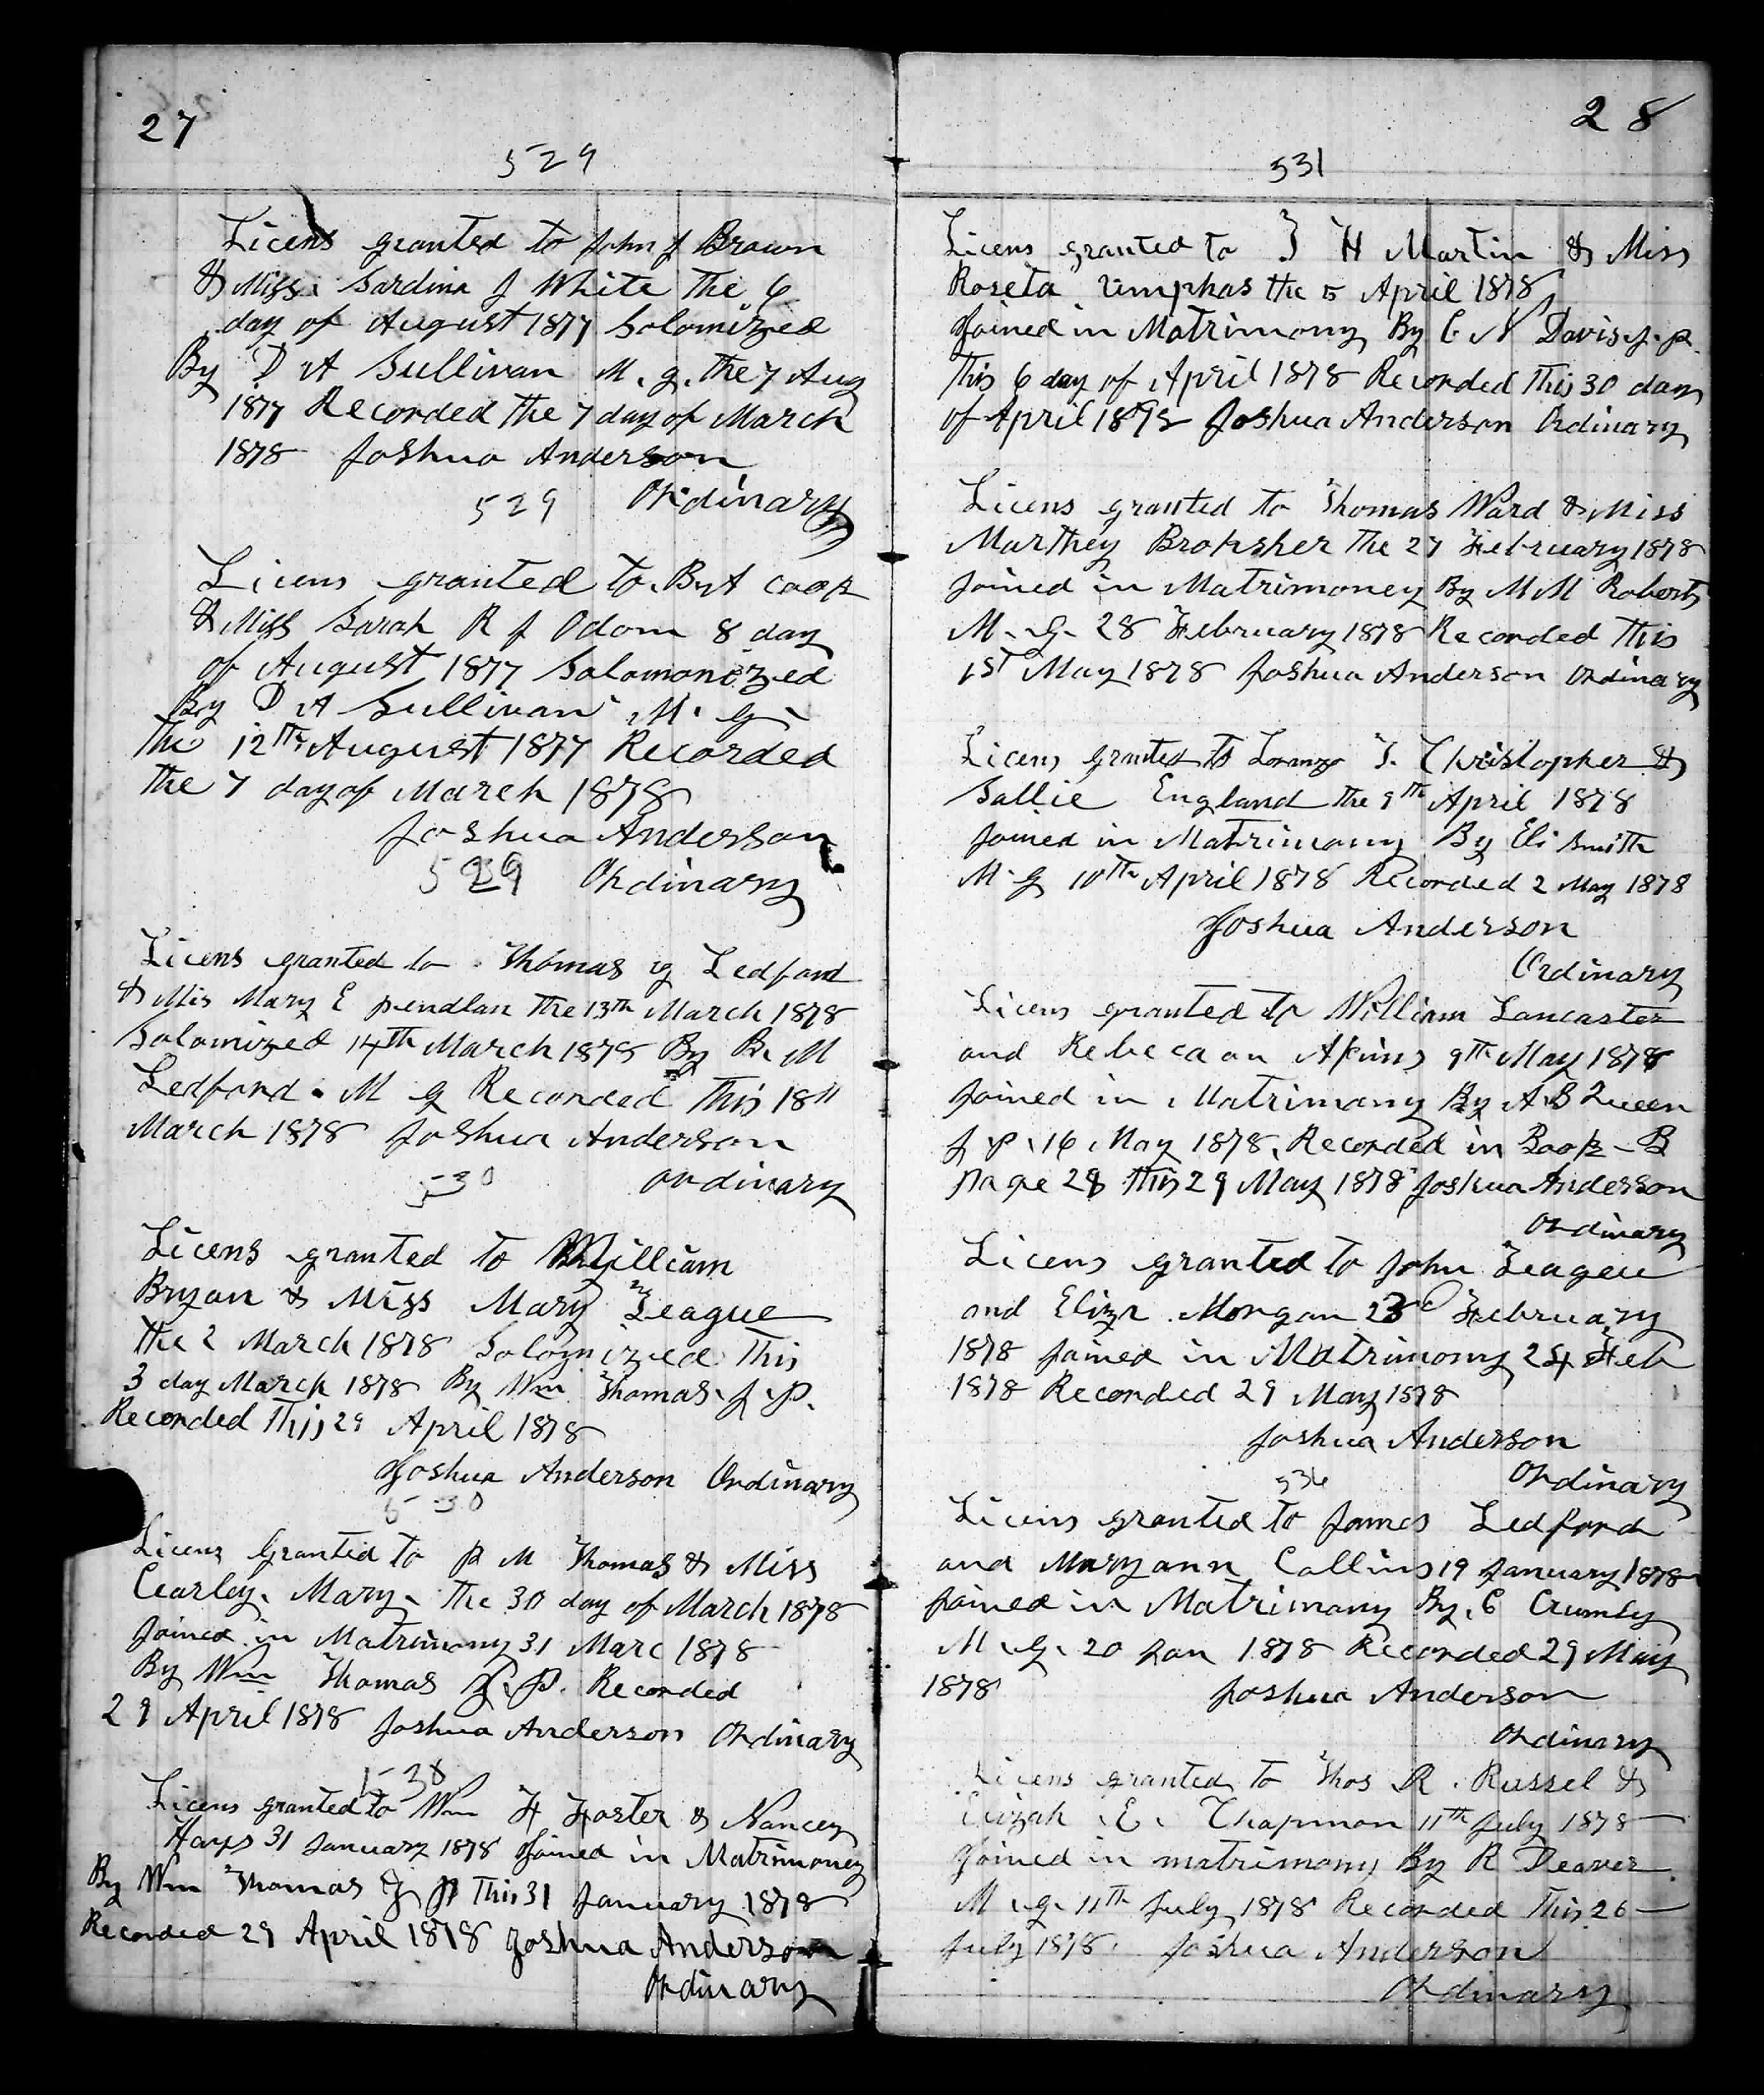 27
529
Licens granted to John J Brown
& Miss Sardina J White the 6
day of August 1877 Solomized
By D A Sullivan M. g. the 7 Aug
1877 Recorded the 7 day of March
1878 Joshua Anderson
529 Ordinary
Licens granted to B A Cook
& Miss Sarah R J Odom 8 day
of August 1877 Solomonized
By D A Sullivan M. G
the 12th August 1877 Recorded
the 7 day of March 1878
Joshua Anderson
529 Ordinary
Licens granted to Thomas g Ledford
& Mis Mary E pendlan the 13th March 1878
Solomized 14th March 1878 By B. M
Ledford. M g Recorded this 18th
March 1878 Joshua Anderson
530 ordinary
Licens granted to William
Bryan & Miss Mary League
the 2 March 1878 Solomized this
3 day March 1878 By Wm Thomas J. P.
Recorded this 29 April 1878
Joshua Anderson Ordinary
530
Licens Granted to P M Thomas & Miss
Cearley. Mary. the 30 day of March 1878
Joined in Matrimony 31 Marc 1878
By Wm Thomas J. P. Recorded
29 April 1878 Joshua Anderson Ordinary
530
Licens granted to Wm H Foster & Nancey
Hays 31 January 1878 Joined in Matrimoney
By Wm Thomas J P this 31 January 1878
Recorded 29 April 1878 Joshua Anderson
Ordinary
28
531
Licens granted to J H Martin & Miss
Roseta the 5 April 1878
Joined in Matrimony By C N Davis J. p.
this 6 day of April 1878 Recorded this 30 day
of April 1878 Joshua Anderson Ordinary
Licens granted to Thomas Ward & Miss
Marthey Broksher the 27 February 1878
Joined in Matrimoney By M M Roberts
M. G. 28 February 1878 Recorded this
1st May 1878 Joshua Anderson Ordinary
Licens granted to Loranzo T. Christopher &
Sallie England the 9th April 1878
Joined in Matrimony By Eli Smith
M. g 10th April 1878 Recorded 2 May 1878
Joshua Anderson
Ordinary
Licens granted to William Lancaster
and Rebecca an Akins 9th May 1878
Joined in Matrimony By A. B Queen
J. P. 16 May 1878. Recorded in Book - B
page 28 this 29 May 1878 Joshua Anderson
Ordinary
Licens granted to John League
and Eliza Morgan 23d February
1878 Joined in Matrimony 24 Feb
1878 Recorded 29 May 1878
Joshua Anderson
536 Ordinary
Licens granted to James Ledford
and Maryann Collins 19 January 1878
Joined in Matrimony By. C Crumley
M. G. 20 Jan 1878 Recorded 29 May
1878 Joshua Anderson
Ordinary
Licens granted to Thos R. Russel &
E. Chapman 11th July 1878
Joined in matrimony By R Deaver
M. g. 11th July 1878 Recorded this 26
July 1878. Joshua Anderson
Ordinary